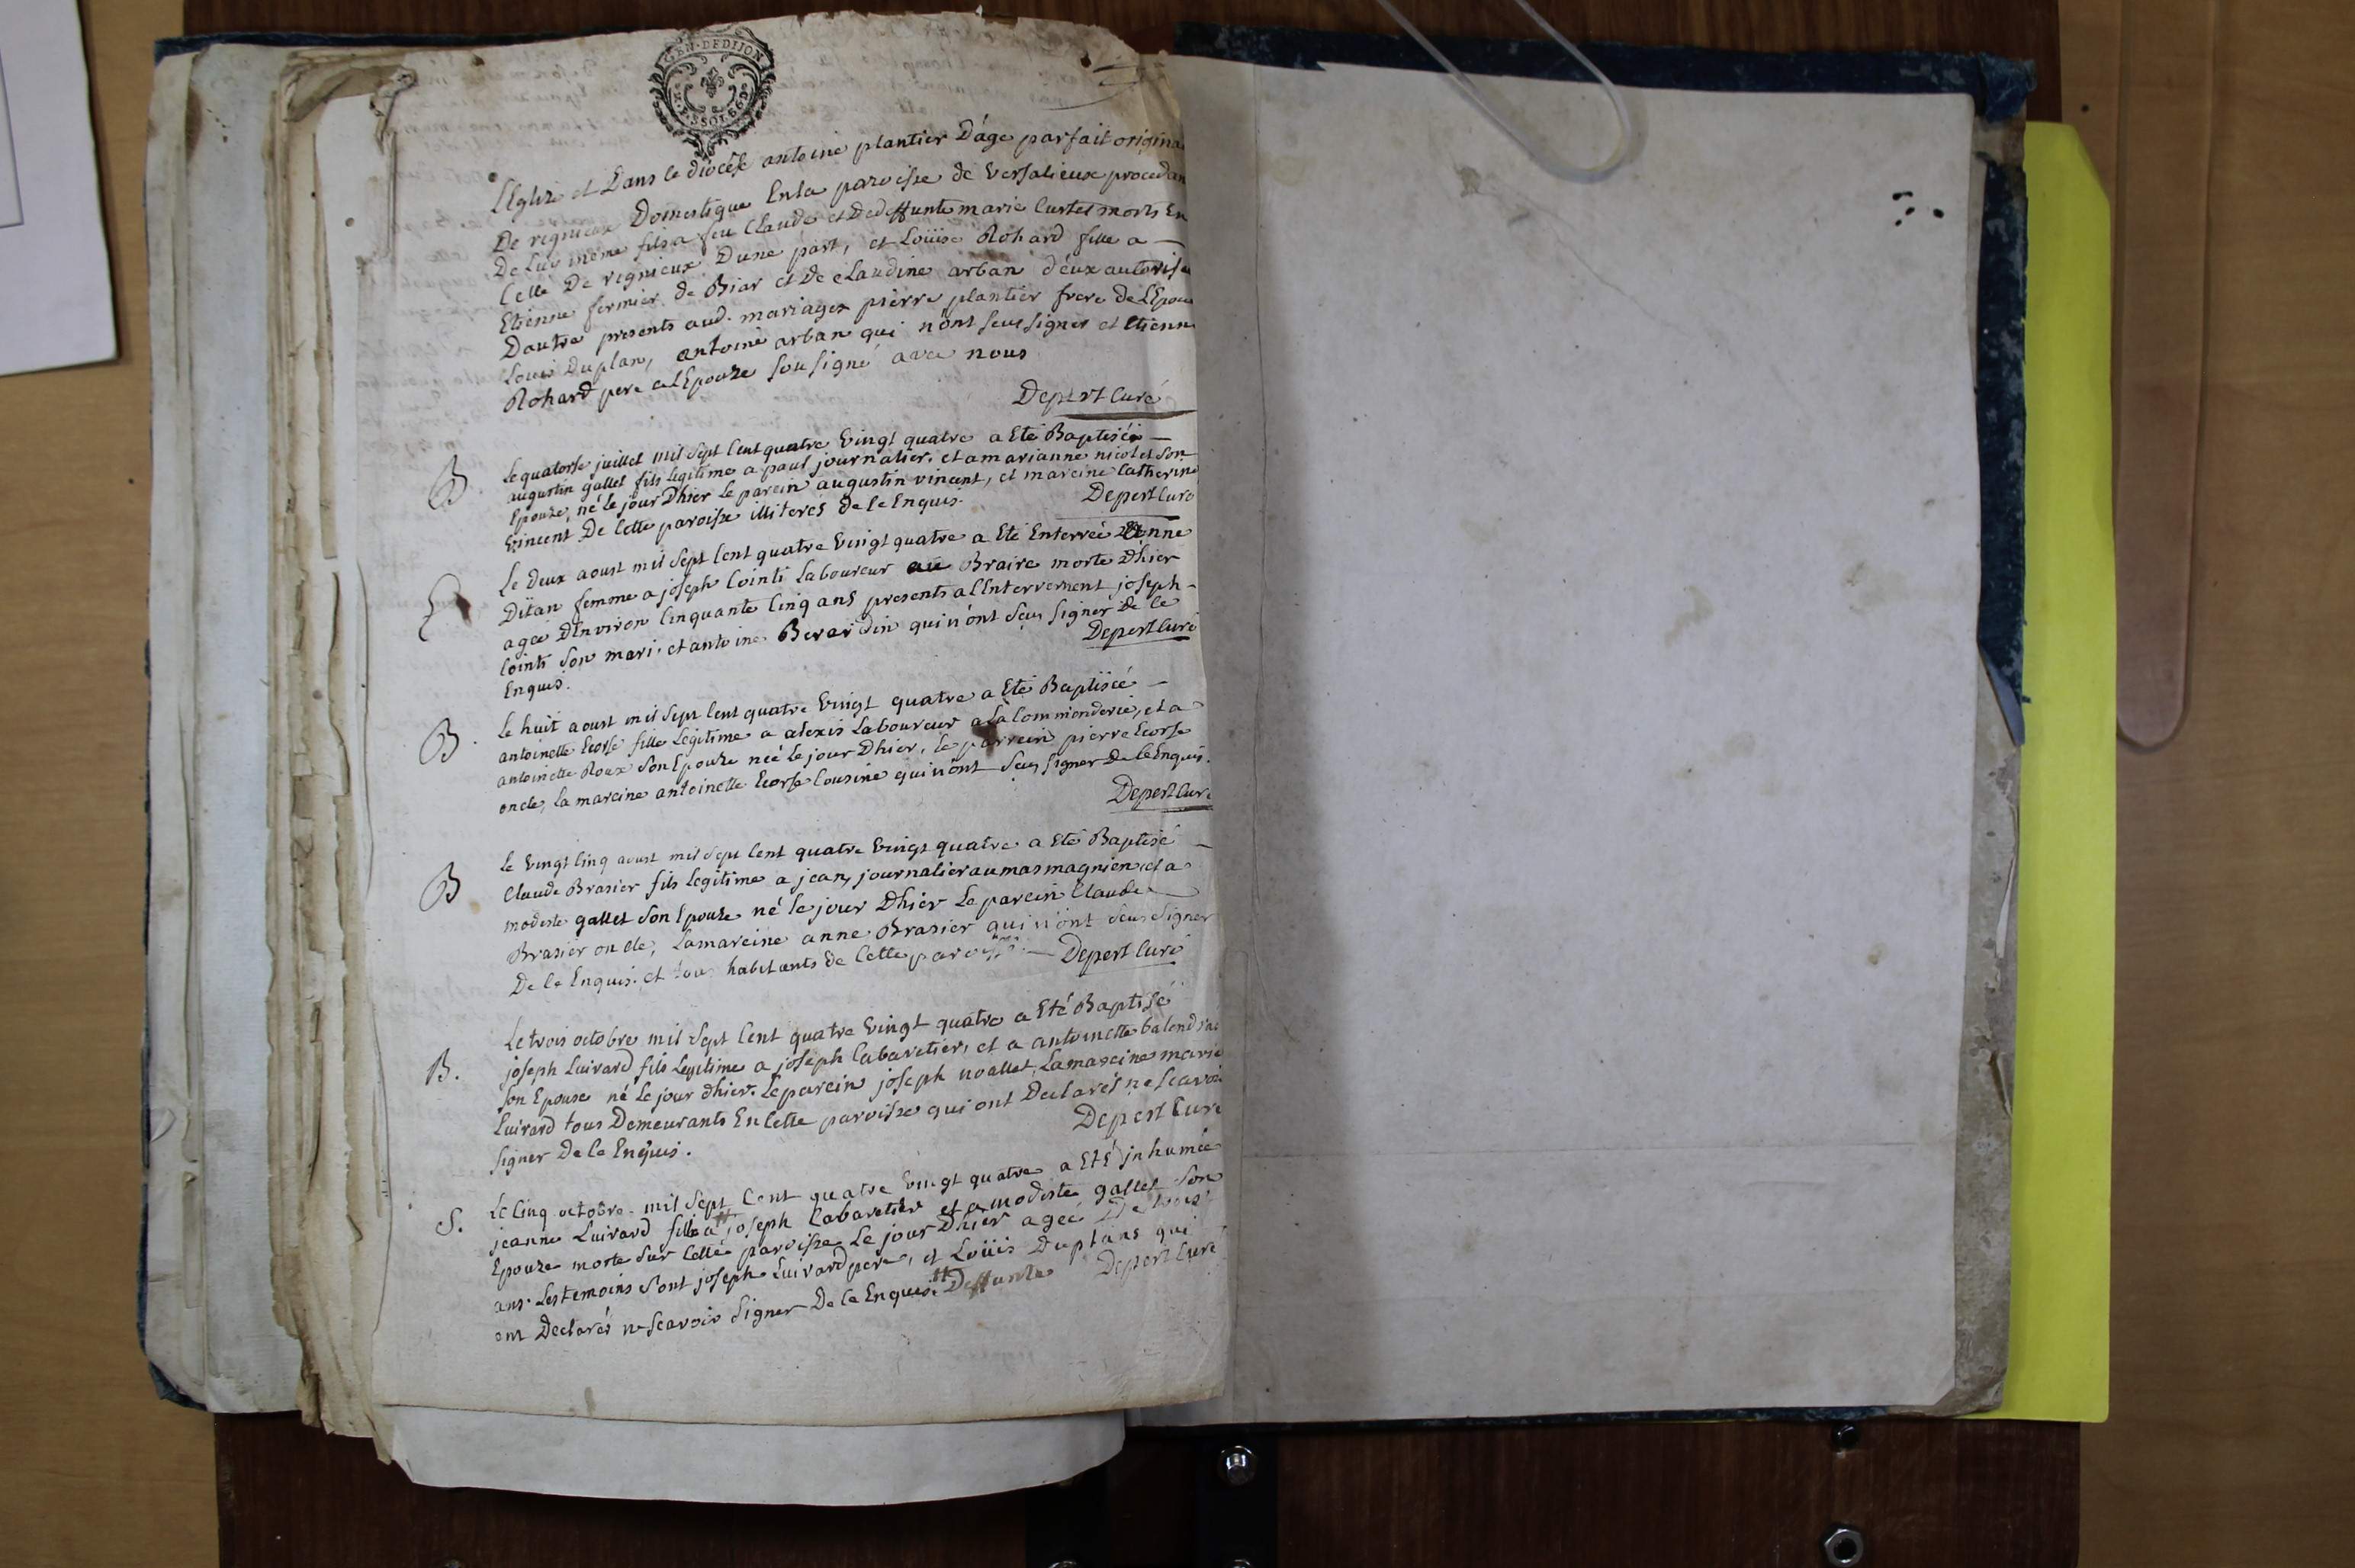 GEN·DE DIJON
L'Eglize et Dans le diocése antoine plantier D'áge parfait origina
De rignieux Domestique Enla paroisse de Versalieux procedan
De luy méme fils a feu Claude et Dedeffunte marie Curtet morts En
Celle De rignieux Dune part, et Loüise Rohard fille a —
Etienne fermier de Biar et de Claudine arban d'eux autorisé
Dautre presents aud. mariages pierre plantier frere de L'Epoux
Louis Duplan, antoine arban qui n'ont sceu signer et Etienne
Rohard pere a l'Epouze sousigné avec nous
Depert Curé
B. Le quatorse juillet mil sept Cent quatre Vingt quatre a Eté Baptisé —
augustin gallet fils legitime a paul journalier, et a marianne nicolet son
Epouze, né le jour Dhier le parein augustin vincent, et mareine Catherine
Vincent De Cette paroisse illiterés de Ce Enquis. Depert Curé
E Le Deux aoust mil sept Cent quatre Vingt quatre a Eté Enterreé anne
Ditan femme a joseph Cointi Laboureur au Braire morte D'hier
ageé D'Environ Cinquante Cinq ans presents a l'Enterrement joseph –
Cointi son mari, et antoine Berardin qui n'ont sçeu signer de Ce
Enquis. Depert Curé
B. Le huit aoust mil sept Cent quatre Vingt quatre a Eté Baptiseé —
antoinette Ecorse fille Legitime a alexis Laboureur a La Commenderie, et a
antoinette Roux son Epouze neé Le jour Dhier, le parrein pierre Ecorse
oncle, la mareine antoinette Ecorse Cousine qui n'ont sceu signer De Ce Enquis.
Depert Curé
B Le Vingt Cinq aoust mil sept Cent quatre Vingt quatre a Eté Baptisé —
Claude Brasier fils Legitime a jean, journalier au mas magnien, et a
modeste gallet son Epouze né le jour Dhier Le parein Claude
Brasier oncle, La mareine anne Brasier qui n'ont sceu signer
De Ce Enquis. et tous habitants de Cette paroisse. — Depert Curé
B. Le trois octobre mil sept Cent quatre Vingt quatre a Eté Baptisé
joseph Cuivard fils Legitime a joseph Cabaretier, et a antoinette
son Epouse né Le jour dhier. Le parein joseph noallet, La mareine marie
Cuivard tous Demeurants En Cette paroisse qui ont Declarés ne scavoir
signer De Ce Enquis. Depert Curé
S. Le Cinq octobre mil sept Cent quatre Vingt quatre a Eté inhumée
jeanne Cuivard fille a # joseph Cabaretier et a modeste gallet son
Epouze morte sur Cette paroisse Le jour Dhier ageé De trois
ans. Les temoins sont joseph Cuivard pere, et Loüis Duplans qui
ont Declarés ne scavoir signer De Ce Enquis. # Deffunte Depert Curé